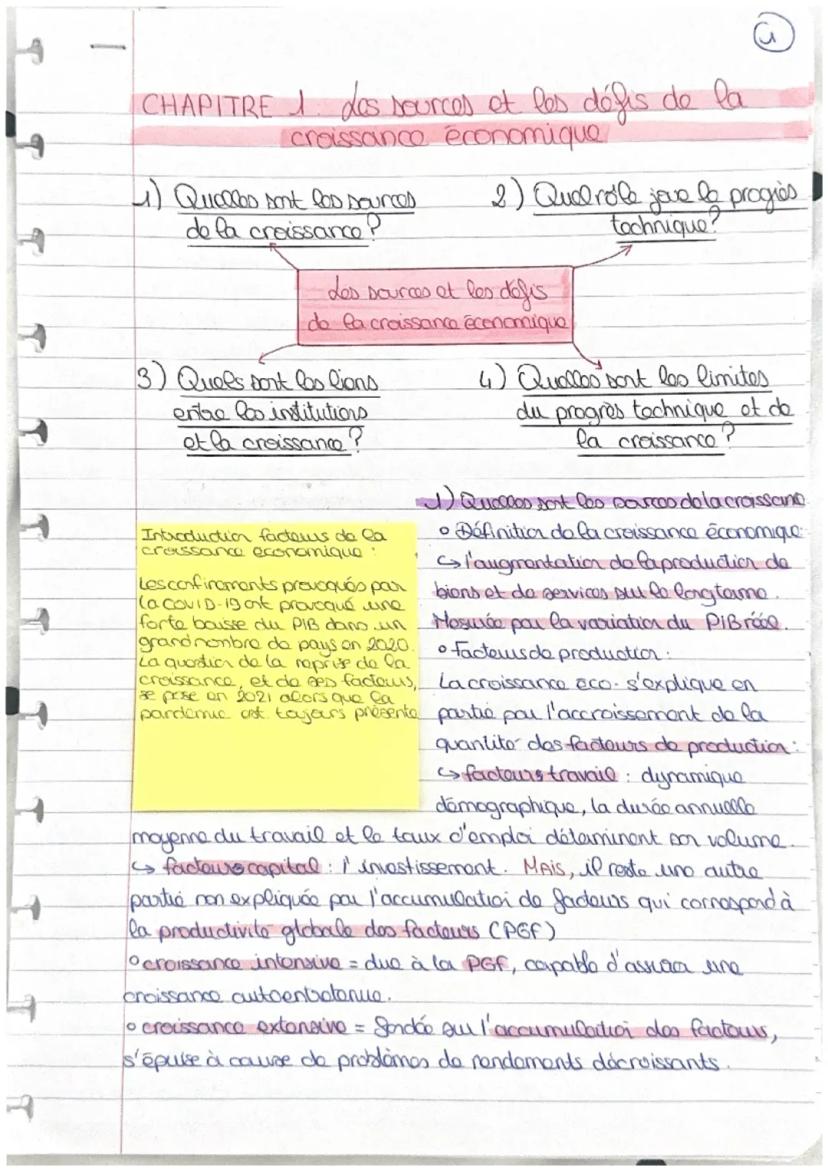 1
CHAPITRE 1. Les sources et les défis de la
croissance économique
1) Quelles sont les sources
de la croissance ?
2) Quel rôle joue le progrès
technique ?
Les sources et les défis
de la croissance économique
3) Quels sont les liens
entre les institutions
et la croissance ?
4) Quelles sont les limites
du progrès technique et de
la croissance ?
Introduction facteurs de la
croissance economique :
Les confinements provoqués par
la COVID-19 ont provoqué une
forte baisse du PIB dans un
grand nombre de pays en 2020.
La question de la reprise de la
croissance, et de ses facteurs,
se pose en 2021 alors que la
pandémie est toujours présente
1) Quelles sont les sources de la croissance
° Définition de la croissance économique
↳ l'augmentation de la production de
biens et de services sur le long terme.
Mesurée par la variation du PIB réel.
° Facteurs de production :
La croissance éco. s'explique en
partie par l'accroissement de la
quantité des facteurs de production :
↳ facteurs travail : dynamique
démographique, la durée annuelle
moyenne du travail et le taux d'emploi déterminent son volume.
↳ facteurs capital : l'investissement. MAIS, il reste une autre
partie non expliquée par l'accumulation de facteurs qui correspond à
la productivité globale des facteurs (PGF)
° croissance intensive = due à la PGF, capable d'assurer une
croissance autoentretenue.
° croissance extensive = fondée sur l'accumulation des facteurs,
s'épuise à cause de problèmes de rendements décroissants.